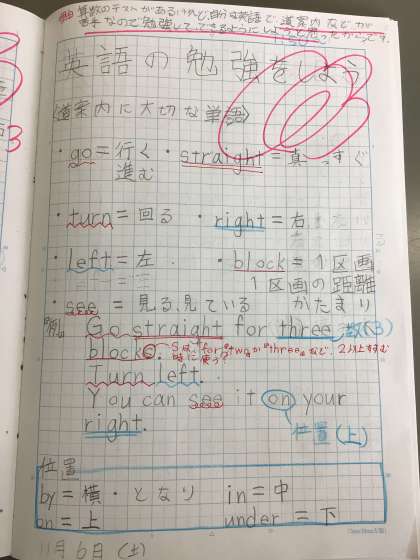 算数のテストがあるけれど、自分は英語で、道案内などが
苦手なので勉強して、できるようにしようと思ったからです。
英語の勉強をしよう
〈道案内に大切な単語〉
・go=行く ・straight=真っすぐ
進む
・turn=回る ・right=右
・left=左 ・block=1区画
1区画の距離
・see=見る、見ている かたまり
例 Go straight for three 数(3)
blocks. Sは、for two か three など、2以上すすむ
時に使う?
Turn left.
You can see it on your
right. 位置(上)
位置
by=横・となり in=中
on=上 under=下
11月6日(土)